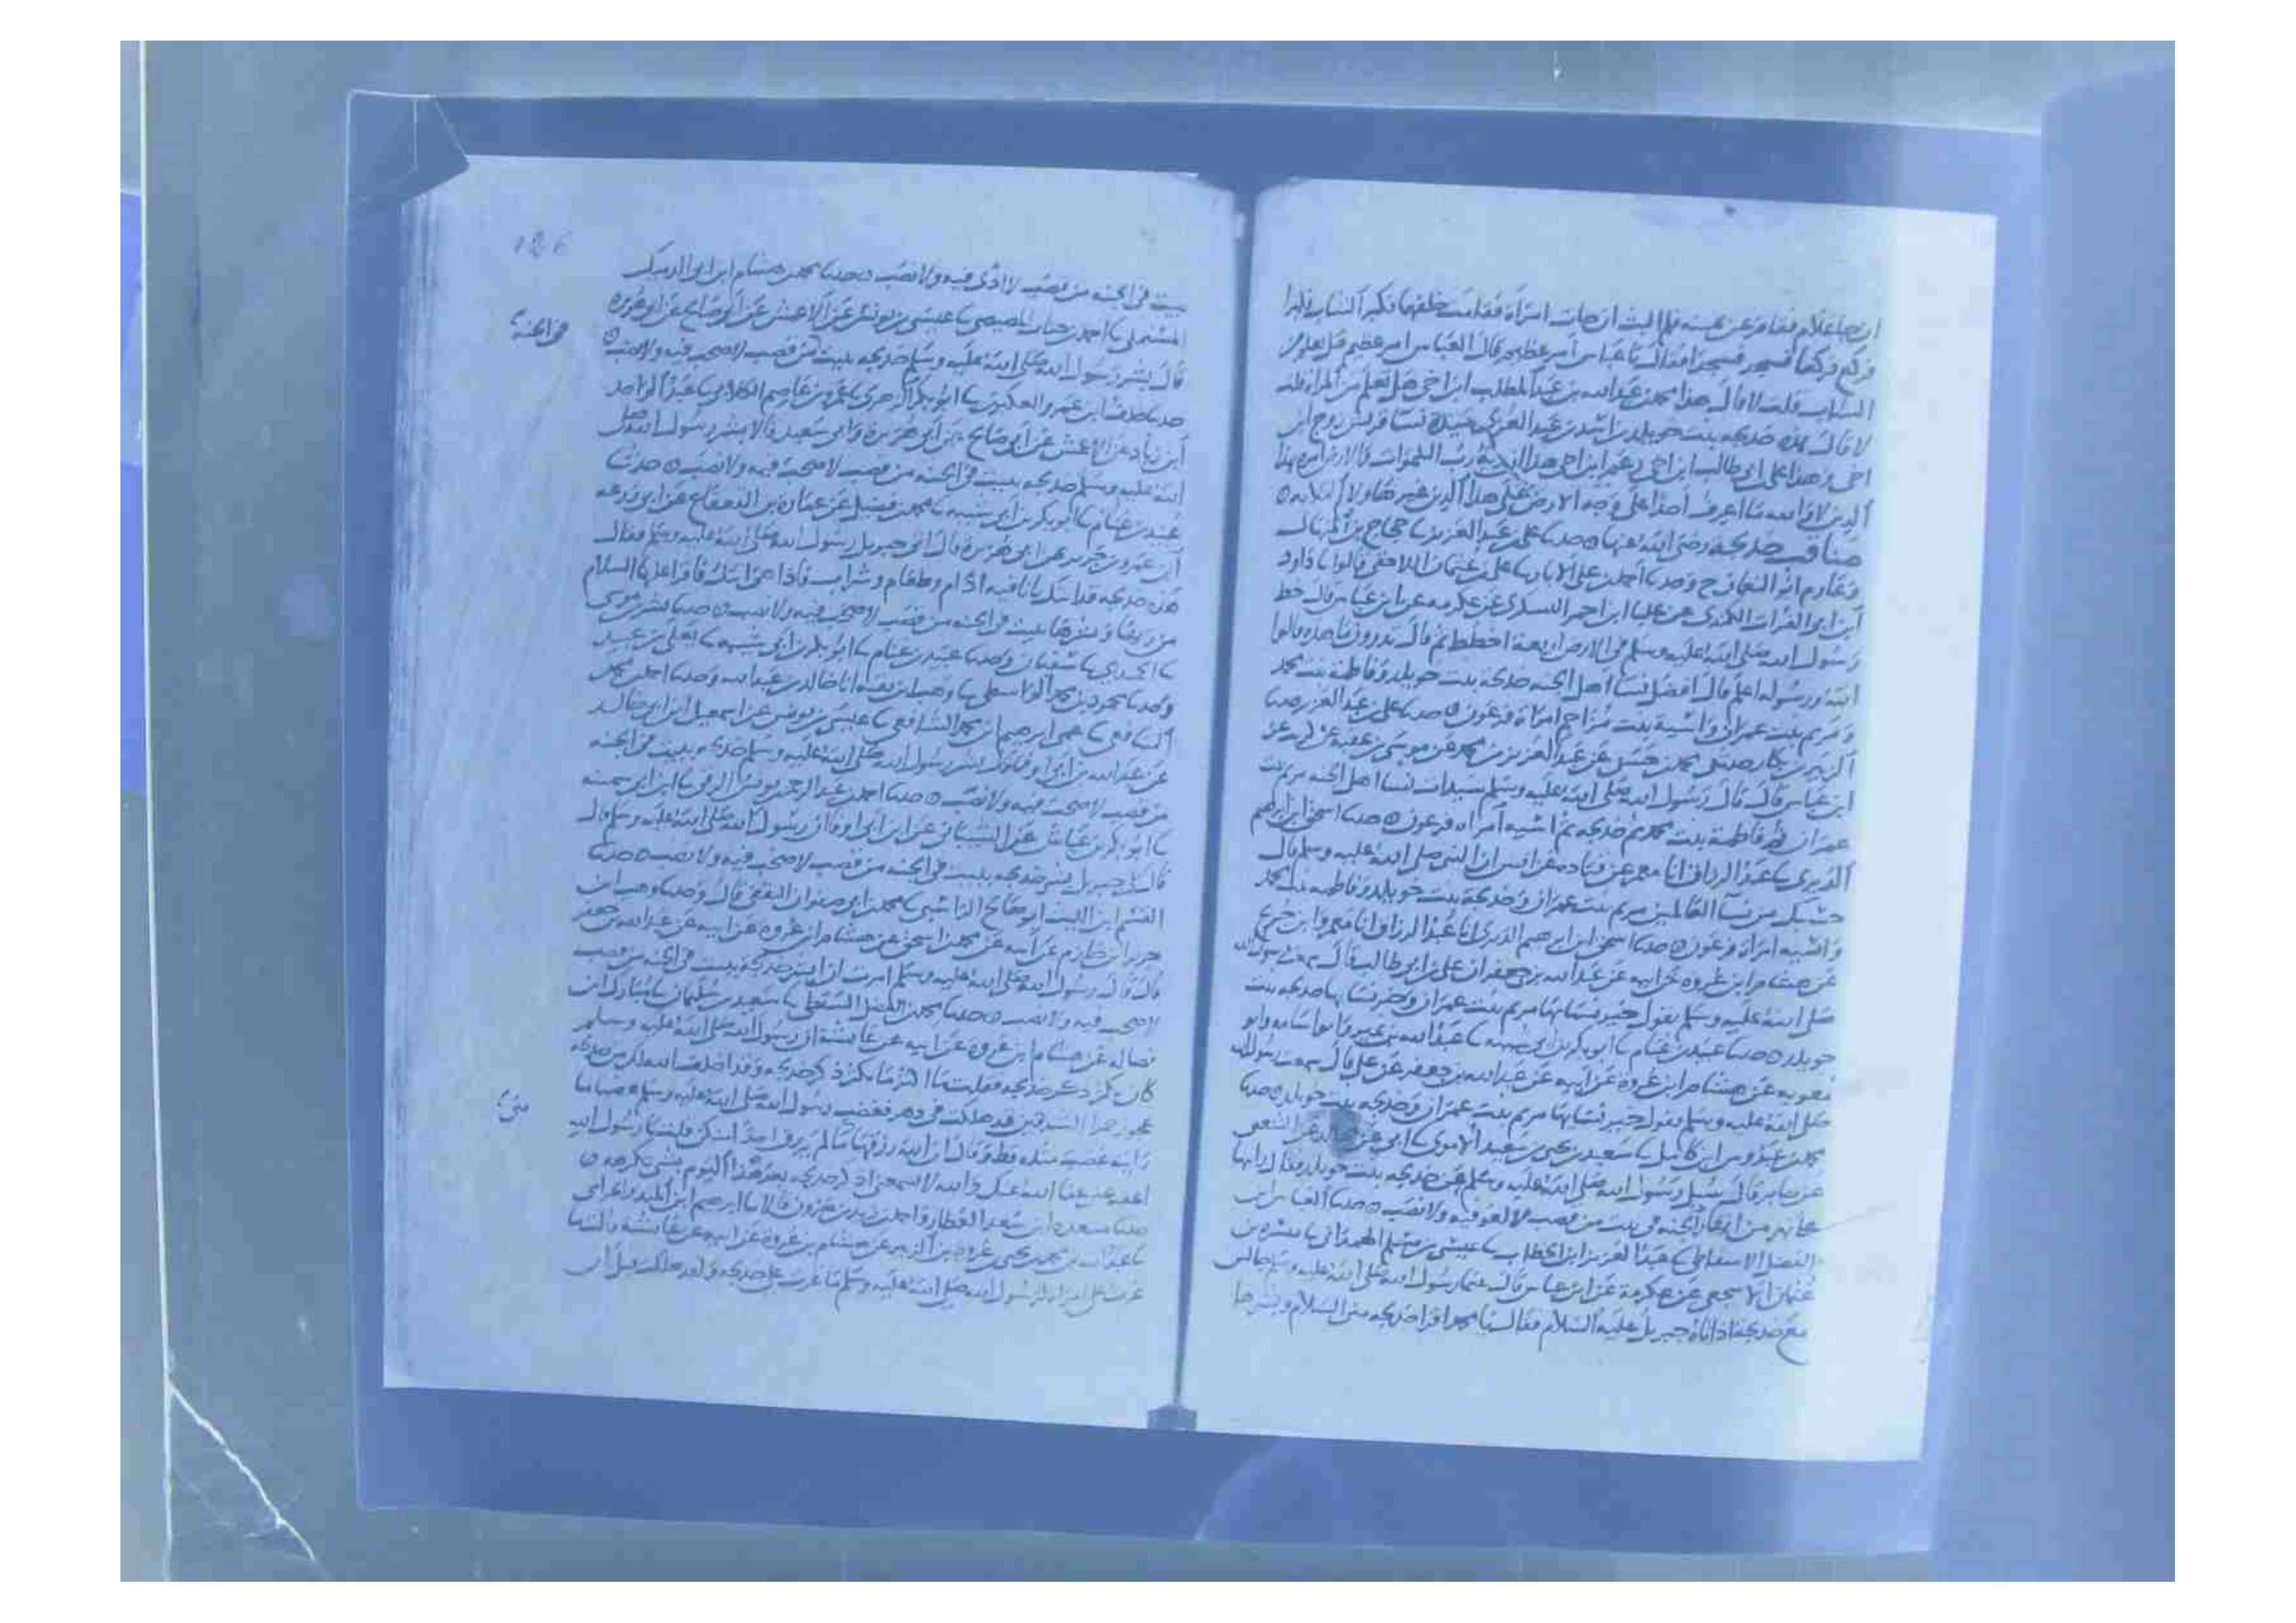 فركع فركعا فسجد فسجدا فقال يا عباس امر عظيم فقال العباس امر عظيم
الشاب قلت لا قال هذا محمد بن عبد الله بن عبد المطلب ابن اخي هل تعلم من المراه قلت
لا قال هذه خديجه بنت خويلد بن اسد بن عبد العزى
اخي وهذا علي بن ابي طالب ابن اخي
الدين لا والله ما اعرف احدا على وجه الارض على هذا الدين غير
مناقب خديجة رضي الله عنها حدثنا علي بن عبد العزيز نا حجاج بن المنهال
وعارم ابو النعمان ح وحدثنا احمد بن علي الابار نا علي بن عثمان اللاحقي قالوا نا داود
ابن ابي الفرات الكندي عن علبا ابن احمر اليشكري عن عكرمه عن ابن عباس قال خط
رسول الله صلى الله عليه وسلم في الارض اربعة اخطط ثم قال تدرون ما هذه قالوا
الله ورسوله اعلم قال افضل نسا اهل الجنه خديجة بنت خويلد وفاطمة بنت محمد
ومريم بنت عمران واسية بنت مزاحم امراة فرعون ه حدثنا علي بن عبد العزيز حدثنا
الزبير بن بكار حدثني محمد بن حسن عن عبد العزيز بن محمد عن موسى بن عقبه عن
ابن عباس قال قال رسول الله صلى الله عليه وسلم سيدات نسا اهل الجنه مريم بنت
عمران ثم فاطمة بنت محمد ثم خديجه ثم اسيه امراه فرعون ه حدثنا اسحق ابن ابرهيم
الدبري نا عبد الرزاق انا معمر عن قتاده عن انس ان النبي صلى الله عليه وسلم قال
حسبك من نسا العالمين مريم بنت عمران وخديجة بنت خويلد وفاطمه بنت محمد
واسيه امراة فرعون ه حدثنا اسحق ابن ابرهيم الدبري انا عبد الرزاق انا معمر وابن جريج
عن هشام ابن عروه عن ابيه عن عبد الله بن جعفر ان علي بن ابي طالب قال سمعت رسول الله
صلى الله عليه وسلم يقول خير نسائها مريم بنت عمران وخير نسائها خديجه بنت
خويلد ه حدثنا عبيد بن غنام نا ابو بكر بن ابي شيبه نا عبد الله بن نمير وابو اسامه وابو
معويه عن هشام ابن عروة عن ابيه عن عبد الله بن جعفر عن علي قال سمعت رسول الله
صلى الله عليه وسلم يقول خير نسائها مريم بنت عمران وخديجه بنت خويلد ه حدثنا
محمد بن عبدوس ابن كامل نا سعيد بن يحيى بن سعيد الاموي نا ابي عن مجالد عن الشعبي
عن جابر قال سئل رسول الله صلى الله عليه وسلم عن خديجه بنت خويلد فقال رايتها
على نهر من انهار الجنه في بيت من قصب لا لغو فيه ولا نصب ه حدثنا العباس ابن
الفضل الاسفاطي نا عبد العزيز ابن الخطاب نا عيسى بن مسلم الهمداني نا ميسره بن
عثمان الاشجعي عن عكرمة عن ابن عباس قال بينما رسول الله صلى الله عليه وسلم جالس
مع خديجة اذ اتاه جبريل عليه السلام فقال يا محمد اقرا خديجه مني السلام وبشرها
126
بيت في الجنه من قصب لا اذى فيه ولا نصب ه حدثنا محمد بن هشام ابن ابي الدميك
المستملي نا احمد بن جناب المصيصي نا عيسى بن يونس عن الاعمش عن ابي صالح عن ابي هريره
في الجنة
قال بشر رسول الله صلى الله عليه وسلم خديجه ببيت من قصب لا صخب فيه ولا نصب ه
ابن زياد عن الاعمش عن ابي صالح عن ابي هريرة وابي سعيد قالا بشر رسول الله صلى
الله عليه وسلم خديجه ببيت في الجنه من قصب لا صخب فيه ولا نصب ه حدثنا
عبيد بن غنام نا ابو بكر بن ابي شيبه نا محمد بن فضيل عن عمارة بن القعقاع عن ابي زرعه
ابن عمرو بن جرير عن ابي هريرة قال اتى جبريل رسول الله صلى الله عليه وسلم فقال
هذه خديجه قد اتتك بانا فيه ادام وطعام وشراب فاذا هي اتتك فاقرا عليها السلام
من ربها وبشرها ببيت في الجنه من قصب لا صخب فيه ولا نصب ه حدثنا بشر بن موسى
نا الحميدي نا سفيان وحدثنا عبيد بن غنام نا ابو بكر بن ابي شيبه نا يعلى بن عبيد
وحدثنا محمود بن محمد الواسطي نا وهب ابن بقيه انا خالد بن عبد الله وحدثنا احمد بن محمد
الشافعي نا عمي ابرهيم ابن محمد الشافعي نا عيسى بن يونس عن اسمعيل ابن ابي خالد
عن عبد الله بن ابي اوفى قال بشر رسول الله صلى الله عليه وسلم خديجه ببيت في الجنه
من قصب لا صخب فيه ولا نصب ه حدثنا احمد بن عبد الرحمن بن يونس الرقي نا ابن ابي سمينه
نا ابو بكر بن عياش عن الشيباني عن ابن ابي اوفى ان رسول الله صلى الله عليه وسلم قال
قال لي جبريل بشر خديجه ببيت في الجنه من قصب لا صخب فيه ولا نصب ه حدثنا
القسم ابن الليث ابو صالح الراسبي نا محمد بن ابي صفوان الثقفي قال وحدثنا وهب ابن
جرير ابن حازم عن ابيه عن محمد بن اسحق عن هشام ابن عروه عن ابيه عن عبد الله بن جعفر
قال قال رسول الله صلى الله عليه وسلم امرت ان ابشر خديجة ببيت في الجنه من قصب
لا صخب فيه ولا نصب ه حدثنا محمد بن الفضل السقطي نا سعيد بن سليمان نا مبارك ابن
فضاله عن هشام ابن عروة عن ابيه عن عائشة ان رسول الله صلى الله عليه وسلم
كان يكثر ذكر خديجه فقلت ما اكثر ما تكثر ذكر خديجه وقد اخلف الله لك من خديجه
عجوز حمرا الشدقين قد هلكت في دهر فغضب رسول الله صلى الله عليه وسلم غضبا ما
رايته غضب مثله قط وقال ان الله رزقها
اعف عني عفا الله عنك والله لا تسمعني اذكر خديجه بعد هذا اليوم بشي تكرهه ه
نا عبد الله بن محمد بن يحيى بن عروة بن الزبير عن هشام بن عروة عن ابيه عن عائشة قالت ما
غرت على امراة لرسول الله صلى الله عليه وسلم ما غرت على خديجه ولقد هلكت قبل ان